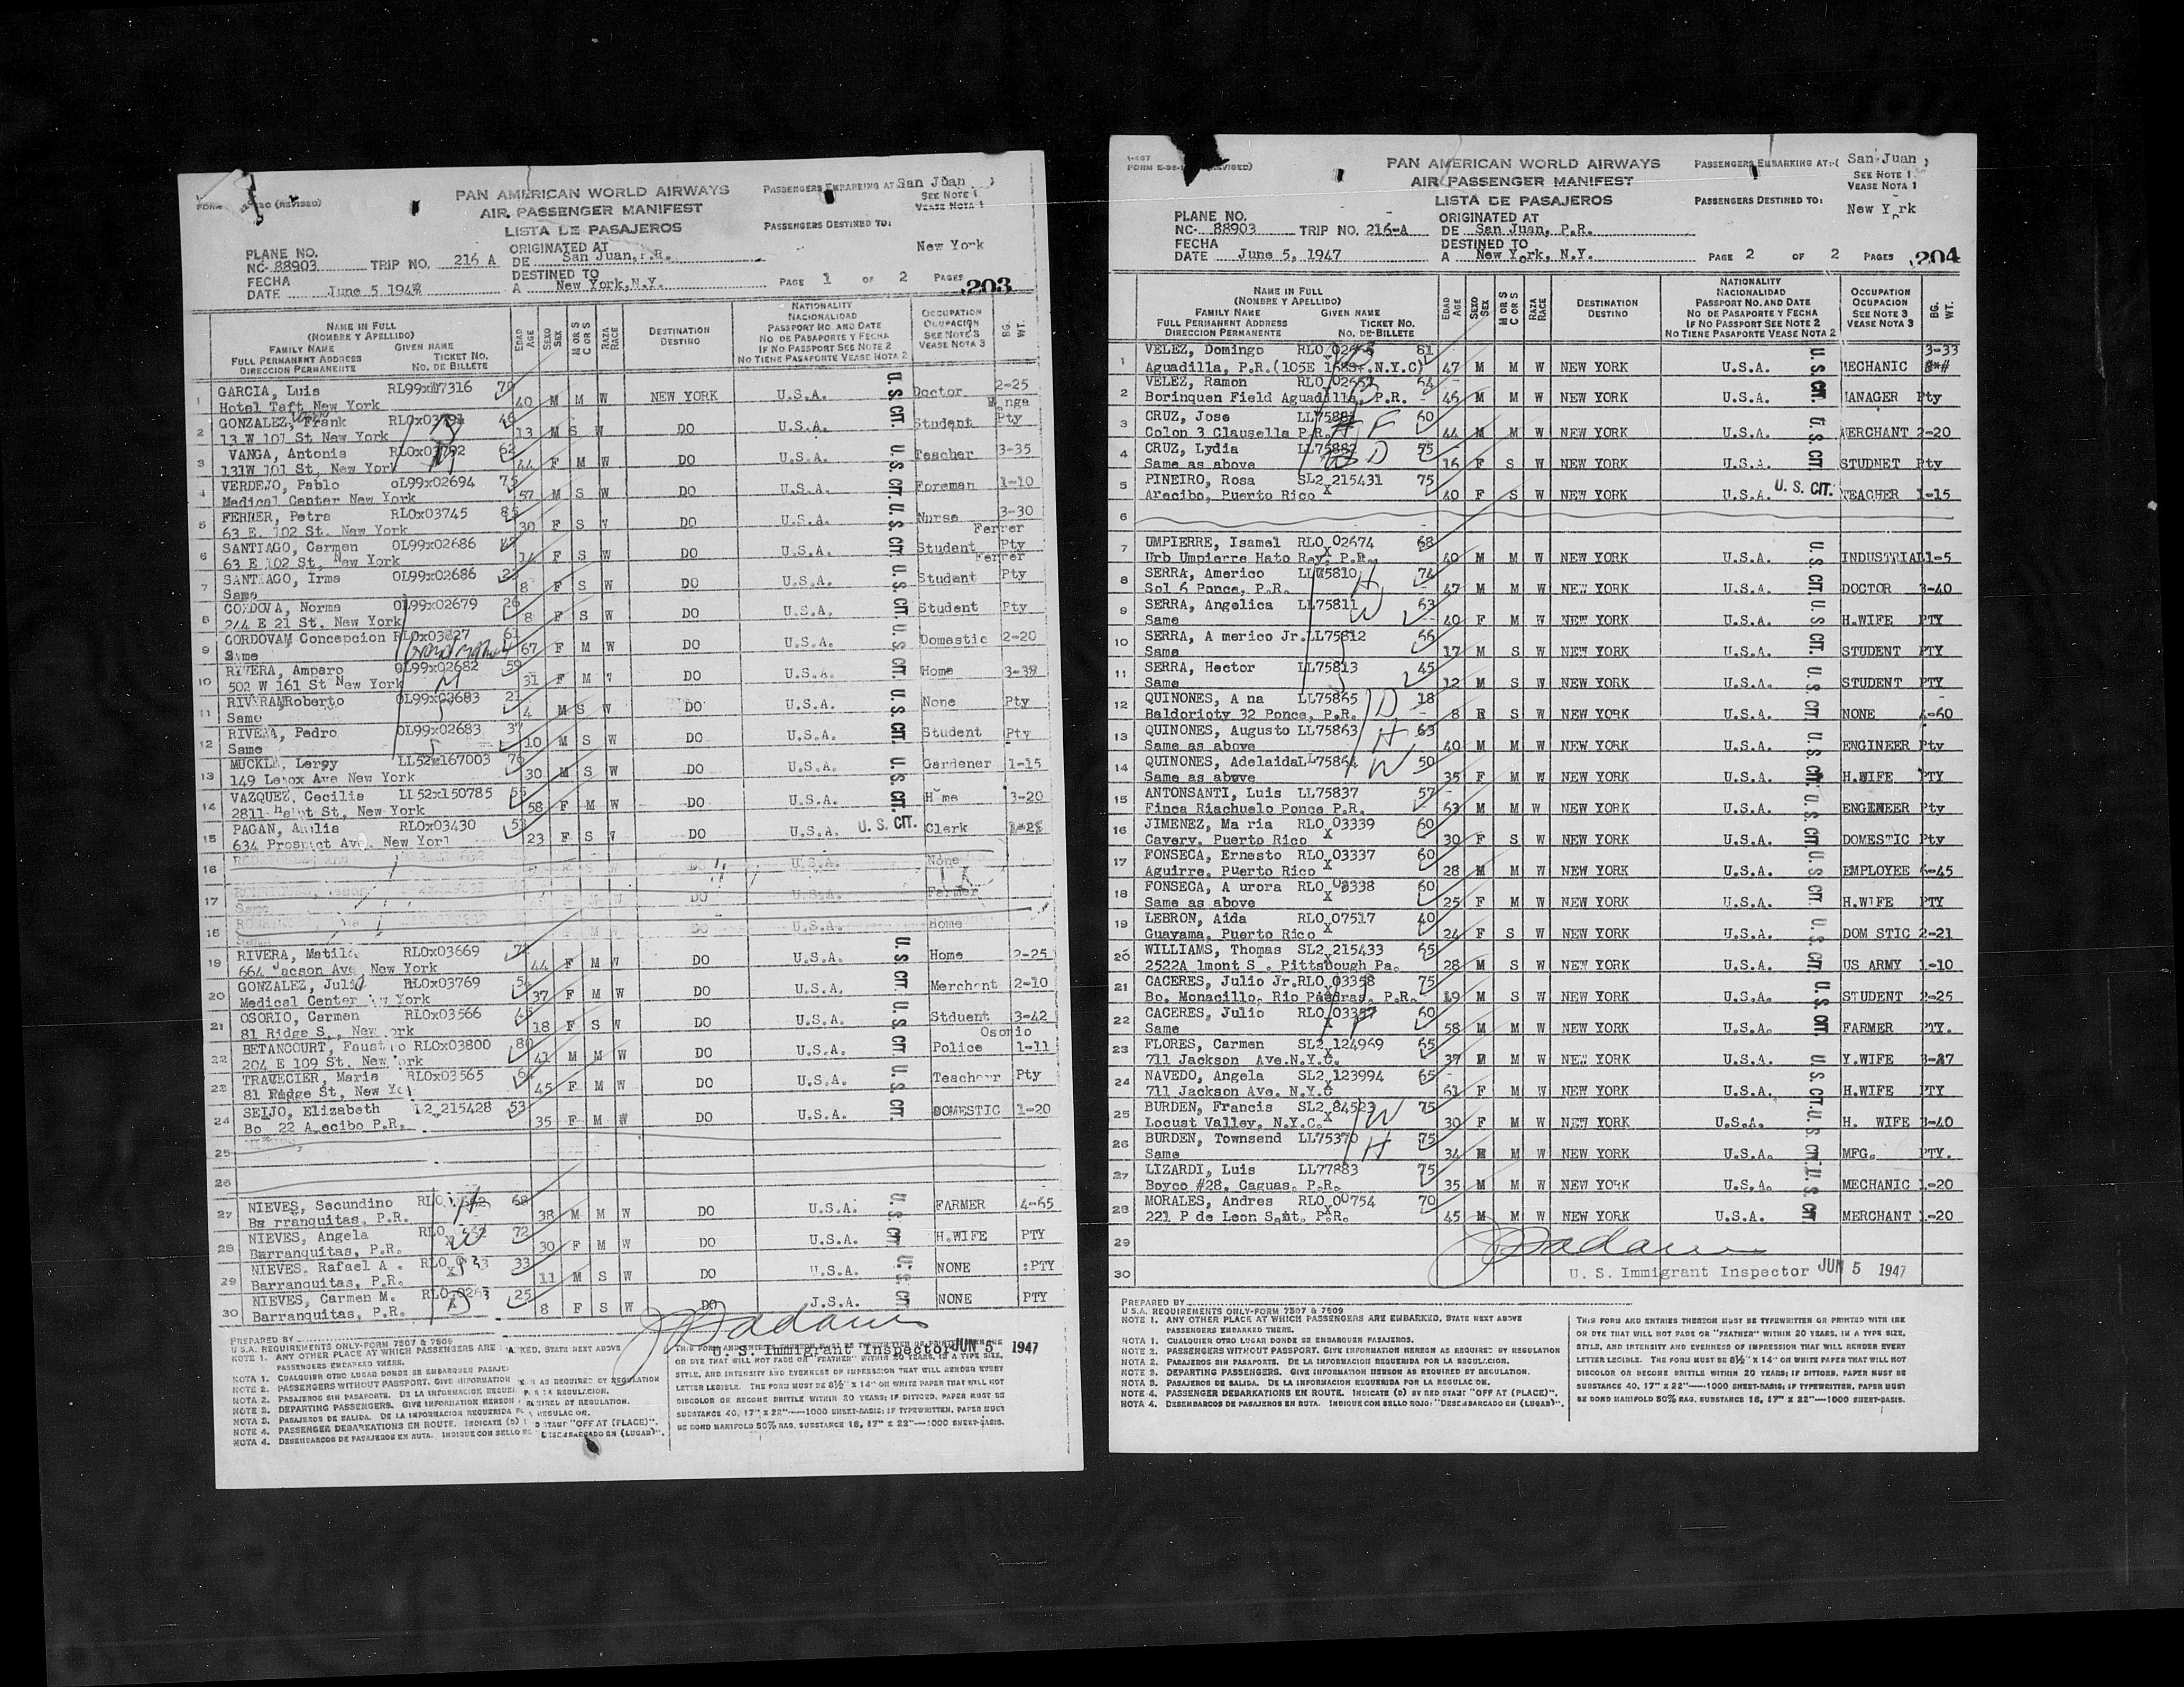 PAN AMERICAN WORLD AIRWAYS
AIR PASSENGER MANIFEST
LISTA DE PASAJEROS
FORM (REVISED)
PASSENGERS EMBARKING AT: San Juan
SEE NOTE 1
VEASE NOTA 1
PASSENGERS DESTINED TO:
New York
PLANE NO.
NC- 88903 TRIP NO. 216 A
ORIGINATED AT
DE San Juan, P.R.
FECHA
DATE June 5 1947
DESTINED TO
A New York, N.Y.
PAGE 1 OF 2 PAGES 203
NAME IN FULL
(NOMBRE Y APELLIDO)
FAMILY NAME GIVEN NAME
FULL PERMANENT ADDRESS TICKET NO.
DIRECCION PERMANENTE NO. DE BILLETE
EDAD AGE SEXO SEX M OR S C OR S RAZA RACE
DESTINATION DESTINO
NATIONALITY
NACIONALIDAD
PASSPORT NO. AND DATE
NO DE PASAPORTE Y FECHA
IF NO PASSPORT SEE NOTE 2
NO TIENE PASAPORTE VEASE NOTA 2
OCCUPATION
OCUPACION
SEE NOTE 3
VEASE NOTA 3
BG. WT.
1 GARCIA, Luis RL99x 7316 70
Hotel Taft New York 40 M M W NEW YORK U.S.A. Doctor 2-25
2 GONZALEZ, Frank RL0x03791 46
13 W 107 St New York 13 M S W DO U.S.A. Student Pty
3 VANGA, Antonia RL0x03792 62
131W 101 St, New York 44 F M W DO U.S.A. Teacher 3-35
4 VERDEJO, Pablo oL99x02694 75
Medical Center New York 57 M S W DO U.S.A. Foreman 1-10
5 FERRER, Petra RL0x03745 85
63 E. 102 St. New York 30 F S W DO U.S.A. Nurse 3-30
Ferrer
6 SANTIAGO, Carmen OL99x02686
63 E 102 St, New York 14 F S W DO U.S.A. Student Pty
Ferrer
7 SANTIAGO, Irma OL99x02686
Same 8 F S W DO U.S.A. Student Pty
8 CORDOVA, Norma OL99x02679 26
244 E 21 St. New York 8 F S W DO U.S.A. Student Pty
9 CORDOVAM Concepcion RL0x03 27 61
Same 67 F M W DO U.S.A. Domestic 2-20
10 RIVERA, Amparo OL99x02682 59
502 W 161 St New York 31 F M W DO U.S.A. Home
11 RIVERA Roberto OL99x02683
Same 4 M S W DO U.S.A. None Pty
12 RIVERA, Pedro OL99x02683
Same 10 M S W DO U.S.A. Student Pty
13 MUCKLE, Leroy LL52x167003 76
149 Lenox Ave New York 30 M S W DO U.S.A. Gardener 1-15
14 VAZQUEZ, Cecilia LL52x150785 55
2811 St, New York 58 F M W DO U.S.A. Home 3-20
15 PAGAN, RL0x03430
634 Prospect Ave. New York 23 F S W DO U.S.A. U. S. CIT. Clerk
16 DO U.S.A. None
17 DO U.S.A. Farmer
18 U.S.A. Home
19 RIVERA, Matilde RL0x03669
664 Jacson Ave New York 44 F M W DO U.S.A. Home 2-25
20 GONZALEZ, Julia RL0x03769
Medical Center New York 37 F M W DO U.S.A. Merchant 2-10
21 OSORIO, Carmen RL0x03566
81 Ridge S., New York 18 F S W DO U.S.A. Stduent 3-42
Osorio
22 BETANCOURT, Faustino RL0x03800 80
204 E 109 St. New York 41 M M W DO U.S.A. Police 1-11
23 TRAVECIER, Maria RL0x03565
81 Ridge St, New York 45 F M W DO U.S.A. Teacher Pty
24 SEIJO, Elizabeth L2 215428 53
Bo 22 A ecibo P.R. 35 F M W DO U.S.A. DOMESTIC 1-20
25
26
27 NIEVES, Secundino RL0 68
Ba rranquitas, P.R. 38 M M W DO U.S.A. FARMER 4-65
28 NIEVES, Angela RL0 72
Barranquitas, P.R. 30 F M W DO U.S.A. H.WIFE PTY
29 NIEVES, Rafael A . RL0 33
Barranquitas, P.R. 11 M S W DO U.S.A. NONE PTY
30 NIEVES, Carmen M. RL0 25
Barranquitas, P.R. 8 F S W DO U.S.A. NONE PTY
U. S. CIT.
U. S. Immigrant Inspector JUN 5 1947
PREPARED BY
U.S.A. REQUIREMENTS ONLY-FORM 7507 & 7509
NOTE 1. ANY OTHER PLACE AT WHICH PASSENGERS ARE EMBARKED. STATE NEXT ABOVE
PASSENGERS EMBARKED THERE.
NOTA 1. CUALQUIER OTRO LUGAR DONDE SE EMBARQUEN PASAJEROS.
NOTE 2. PASSENGERS WITHOUT PASSPORT. GIVE INFORMATION HEREON AS REQUIRED BY REGULATION
NOTA 2. PASAJEROS SIN PASAPORTE. DE LA INFORMACION REQUERIDA POR LA REGULACION.
NOTE 3. DEPARTING PASSENGERS. GIVE INFORMATION HEREON AS REQUIRED BY REGULATION.
NOTA 3. PASAJEROS DE SALIDA. DE LA INFORMACION REQUERIDA POR LA REGULACION.
NOTE 4. PASSENGER DEBARKATIONS EN ROUTE. INDICATE (D) BY RED STAMP "OFF AT (PLACE)".
NOTA 4. DESEMBARCOS DE PASAJEROS EN RUTA. INDIQUE CON SELLO ROJO: "DESEMBARCADO EN (LUGAR)".
THIS FORM AND ENTRIES THEREON MUST BE TYPEWRITTEN OR PRINTED WITH INK
OR DYE THAT WILL NOT FADE OR "FEATHER" WITHIN 20 YEARS, IN A TYPE SIZE,
STYLE, AND INTENSITY AND EVENNESS OF IMPRESSION THAT WILL RENDER EVERY
LETTER LEGIBLE. THE FORM MUST BE 8½" X 14" ON WHITE PAPER THAT WILL NOT
DISCOLOR OR BECOME BRITTLE WITHIN 20 YEARS; IF DITTOED, PAPER MUST BE
SUBSTANCE 40, 17" X 22"——1000 SHEET-BASIS; IF TYPEWRITTEN, PAPER MUST
BE BOND MANIFOLD 50% RAG, SUBSTANCE 16, 17" X 22"——1000 SHEET-BASIS.
FORM E-36- (REVISED)
PAN AMERICAN WORLD AIRWAYS
AIR PASSENGER MANIFEST
LISTA DE PASAJEROS
PASSENGERS EMBARKING AT: ( San Juan )
SEE NOTE 1
VEASE NOTA 1
PASSENGERS DESTINED TO:
New York
PLANE NO.
NC- 88903 TRIP NO. 216-A
ORIGINATED AT
DE San Juan, P.R.
FECHA
DATE June 5, 1947
DESTINED TO
A New York, N.Y.
PAGE 2 OF 2 PAGES 204
NAME IN FULL
(NOMBRE Y APELLIDO)
FAMILY NAME GIVEN NAME
FULL PERMANENT ADDRESS TICKET NO.
DIRECCION PERMANENTE NO. DE BILLETE
EDAD AGE SEXO SEX M OR S C OR S RAZA RACE
DESTINATION DESTINO
NATIONALITY
NACIONALIDAD
PASSPORT NO. AND DATE
NO DE PASAPORTE Y FECHA
IF NO PASSPORT SEE NOTE 2
NO TIENE PASAPORTE VEASE NOTA 2
OCCUPATION
OCUPACION
SEE NOTE 3
VEASE NOTA 3
BG. WT.
1 VELEZ, Domingo RL0 81 3-33
Aguadilla, P.R.(105E 168St.N.Y.C) 47 M M W NEW YORK U.S.A. MECHANIC
2 VELEZ, Ramon RL0 02657 64
Borinquen Field Aguadilla, P.R. 46 M M W NEW YORK U.S.A. MANAGER Pty
3 CRUZ, Jose LL75881 60
Colon 3 Clausella P.R. 44 M M W NEW YORK U.S.A. MERCHANT 2-20
4 CRUZ, Lydia LL75882 55
Same as above 16 F S W NEW YORK U.S.A. STUDNET Pty
5 PINEIRO, Rosa SL2x215431 75
Arecibo, Puerto Rico 40 F S W NEW YORK U.S.A. U. S. CIT. TEACHER 1-15
6
7 UMPIERRE, Isamel RL0x02674 68
Urb Umpierre Hato Rey, P.R. 40 M M W NEW YORK U.S.A. INDUSTRIAL1-5
8 SERRA, Americo LL75810 74
Sol 6 Ponce, P.R. 47 M M W NEW YORK U.S.A. DOCTOR 3-40
9 SERRA, Angelica LL75811 63
Same 40 F M W NEW YORK U.S.A. H.WIFE PTY
10 SERRA, A merico Jr.LL75812 66
Same 17 M S W NEW YORK U.S.A. STUDENT PTY
11 SERRA, Hector LL75813 45
Same 12 M S W NEW YORK U.S.A. STUDENT PTY
12 QUINONES, A na LL75865 18
Baldorioty 32 Ponce, P.R. 8 F S W NEW YORK U.S.A. NONE 4-60
13 QUINONES, Augusto LL75863 63
Same as above 40 M M W NEW YORK U.S.A. ENGINEER Pty
14 QUINONES, AdelaidaLL75864 50
Same as above 35 F M W NEW YORK U.S.A. H.WIFE PTY
15 ANTONSANTI, Luis LL75837 57
Finca Riachuelo Ponce P.R. 63 M M W NEW YORK U.S.A. ENGINEER Pty
16 JIMENEZ, Ma ria RL0x03339 60
Cayery, Puerto Rico 30 F S W NEW YORK U.S.A. DOMESTIC Pty
17 FONSECA, Ernesto RL0x03337 60
Aguirre, Puerto Rico 28 M M W NEW YORK U.S.A. EMPLOYEE 6-45
18 FONSECA, A urora RL0x03338 60
Same as above 25 F M W NEW YORK U.S.A. H.WIFE PTY
19 LEBRON, Aida RL0x07517 40
Guayama, Puerto Rico 24 F S W NEW YORK U.S.A. DOM STIC 2-21
20 WILLIAMS, Thomas SL2x215433 65
2522A lmont S . Pittsbough Pa. 28 M S W NEW YORK U.S.A. US ARMY 1-10
21 CACERES, Julio Jr.RL0x03358 75
Bo. Monacillo, Rio Piedras, P.R. 19 M S W NEW YORK U.S.A. STUDENT 2-25
22 CACERES, Julio RL0x03357 60
Same 58 M M W NEW YORK U.S.A. FARMER PTY.
23 FLORES, Carmen SL2x124969 65
711 Jackson Ave.N.Y.C. 37 M W NEW YORK U.S.A. Y.WIFE
24 NAVEDO, Angela SL2x123994 65
711 Jackson Ave. N.Y.C 61 F M W NEW YORK U.S.A. H.WIFE PTY
25 BURDEN, Francis SL2x84523 75
Locust Valley, N.Y.C. 30 F M W NEW YORK U.S.A. H. WIFE 3-40
26 BURDEN, Townsend LL75370 75
Same 34 M M W NEW YORK U.S.A. MFG. PTY.
27 LIZARDI, Luis LL77883 75
Boyco #28, Caguas, P.R. 35 M M W NEW YORK U.S.A. MECHANIC 1-20
28 MORALES, Andres RL0x00754 70
221 P de Leon Sant. P.R. 45 M M W NEW YORK U.S.A. MERCHANT 1-20
29
30
U. S. CIT.
U. S. Immigrant Inspector JUN 5 1947
PREPARED BY
U.S.A. REQUIREMENTS ONLY-FORM 7507 & 7509
NOTE 1. ANY OTHER PLACE AT WHICH PASSENGERS ARE EMBARKED, STATE NEXT ABOVE
PASSENGERS EMBARKED THERE.
NOTA 1. CUALQUIER OTRO LUGAR DONDE SE EMBARQUEN PASAJEROS.
NOTE 2. PASSENGERS WITHOUT PASSPORT. GIVE INFORMATION HEREON AS REQUIRED BY REGULATION
NOTA 2. PASAJEROS SIN PASAPORTE. DE LA INFORMACION REQUERIDA POR LA REGULACION.
NOTE 3. DEPARTING PASSENGERS. GIVE INFORMATION HEREON AS REQUIRED BY REGULATION.
NOTA 3. PASAJEROS DE SALIDA. DE LA INFORMACION REQUERIDA POR LA REGULACION.
NOTE 4. PASSENGER DEBARKATIONS EN ROUTE. INDICATE (D) BY RED STAMP "OFF AT (PLACE)".
NOTA 4. DESEMBARCOS DE PASAJEROS EN RUTA. INDIQUE CON SELLO ROJO: "DESEMBARCADO EN (LUGAR)".
THIS FORM AND ENTRIES THEREON MUST BE TYPEWRITTEN OR PRINTED WITH INK
OR DYE THAT WILL NOT FADE OR "FEATHER" WITHIN 20 YEARS, IN A TYPE SIZE,
STYLE, AND INTENSITY AND EVENNESS OF IMPRESSION THAT WILL RENDER EVERY
LETTER LEGIBLE. THE FORM MUST BE 8½" X 14" ON WHITE PAPER THAT WILL NOT
DISCOLOR OR BECOME BRITTLE WITHIN 20 YEARS; IF DITTOED, PAPER MUST BE
SUBSTANCE 40, 17" X 22"——1000 SHEET-BASIS; IF TYPEWRITTEN, PAPER MUST
BE BOND MANIFOLD 50% RAG, SUBSTANCE 16, 17" X 22"——1000 SHEET-BASIS.